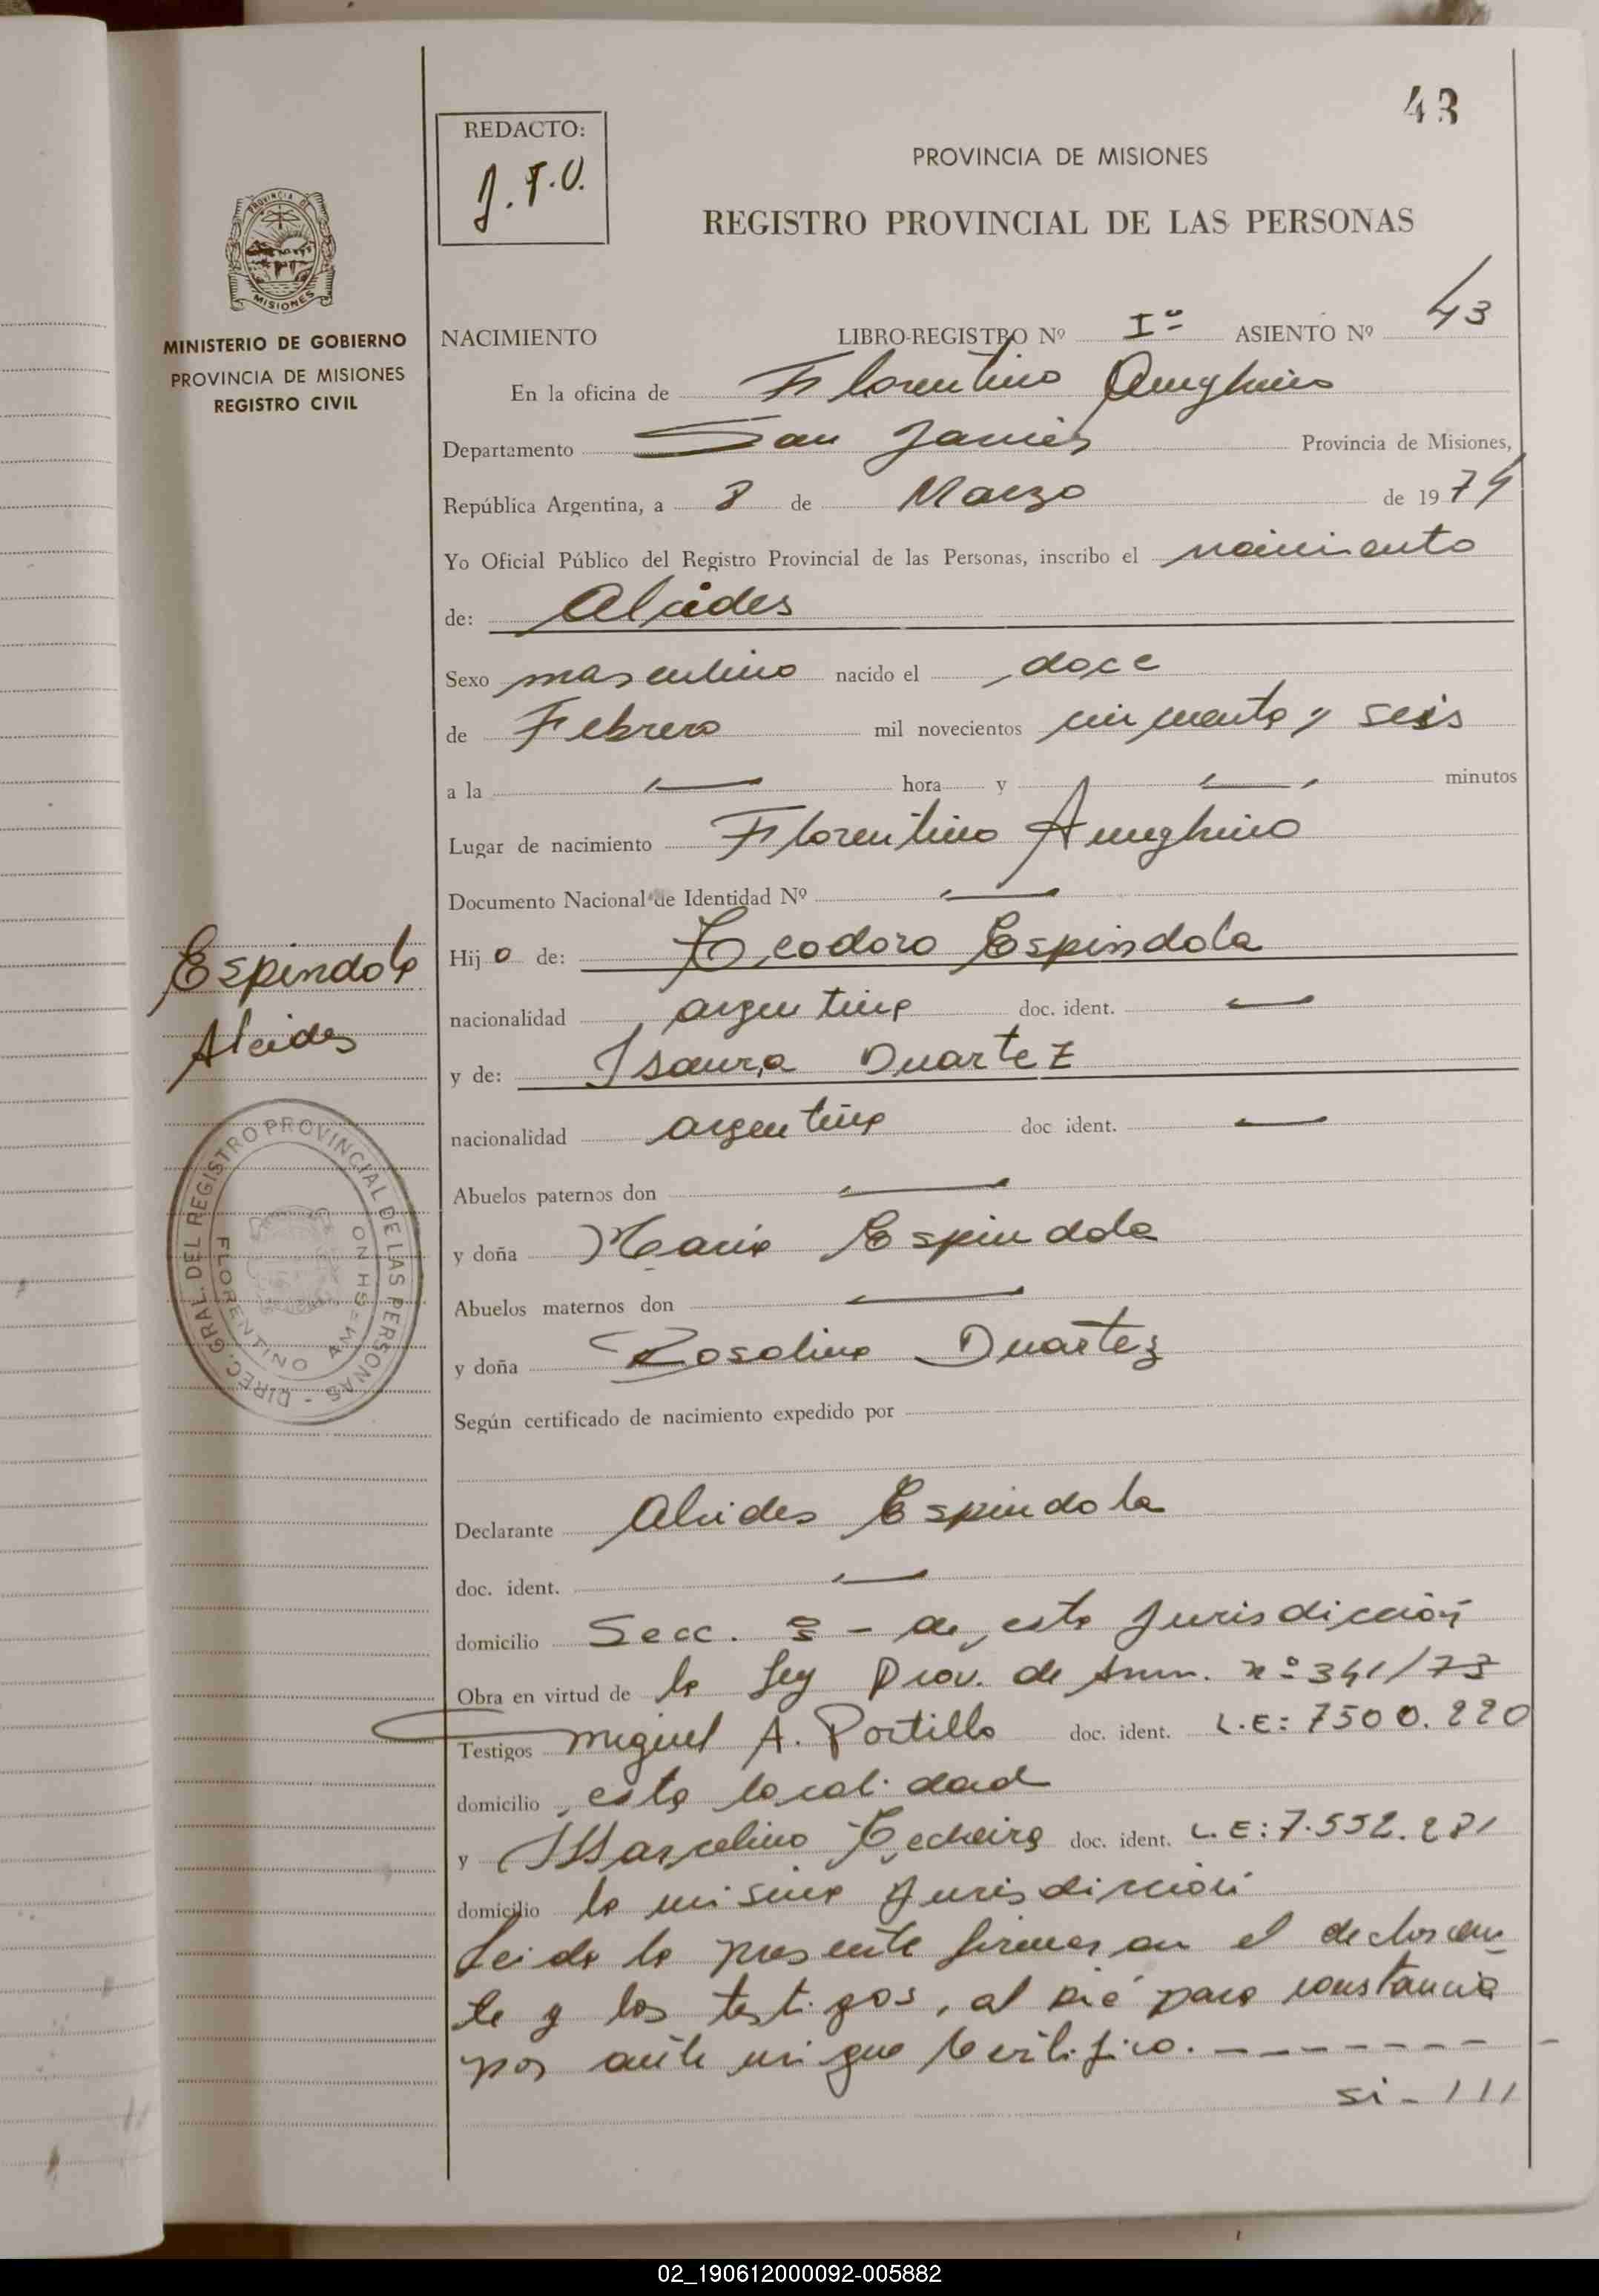 43
REDACTO:
J.F.V.
PROVINCIA DE MISIONES
REGISTRO PROVINCIAL DE LAS PERSONAS
PROVINCIA DE
MISIONES
MINISTERIO DE GOBIERNO
PROVINCIA DE MISIONES
REGISTRO CIVIL
NACIMIENTO LIBRO-REGISTRO Nº Iº ASIENTO Nº 43
En la oficina de Florentino Ameghino
Departamento San Javier Provincia de Misiones,
República Argentina, a 8 de Marzo de 1974
Yo Oficial Público del Registro Provincial de las Personas, inscribo el nacimiento
de: Alcides
Sexo masculino nacido el doce
de Febrero mil novecientos cincuenta y seis
a la — hora y — minutos
Lugar de nacimiento Florentino Ameghino
Documento Nacional de Identidad Nº —
Hijo de: Teodoro Espindola
nacionalidad argentina doc. ident. —
y de: Isaura Duartez
nacionalidad argentina doc ident. —
Abuelos paternos don —
y doña Maria Espindola
Abuelos maternos don —
y doña Rosalina Duartez
Según certificado de nacimiento expedido por
Declarante Alcides Espindola
doc. ident. —
domicilio Secc. - de esta Jurisdicción
Obra en virtud de la Ley Prov. de Amn. nº 341/73
Testigos Miguel A. Portillo doc. ident. L.E: 7500.220
domicilio esta localidad
y Marcelino Techeira doc. ident. L.E: 7.552.281
domicilio la misma Jurisdicción
Leida la presente firmaran el declaran-
te y los testigos, al pié para constancia
por ante mi que Certifico. - - - - - - - -
si - 111
Espindola
Alcides
DIREC. GRAL. DEL REGISTRO PROVINCIAL DE LAS PERSONAS -
FLORENTINO AMEGHINO
02_190612000092-005882